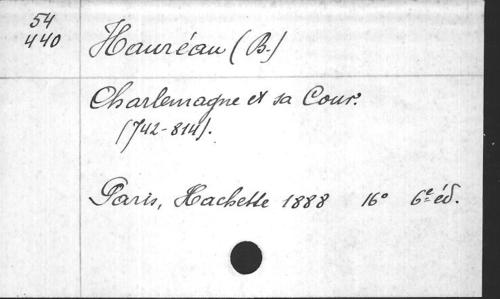 54
440
Hauréau (B.)
Charlemagne et sa Cour.
(742-814).
Paris, Hachette 1888 16° 6e éd.